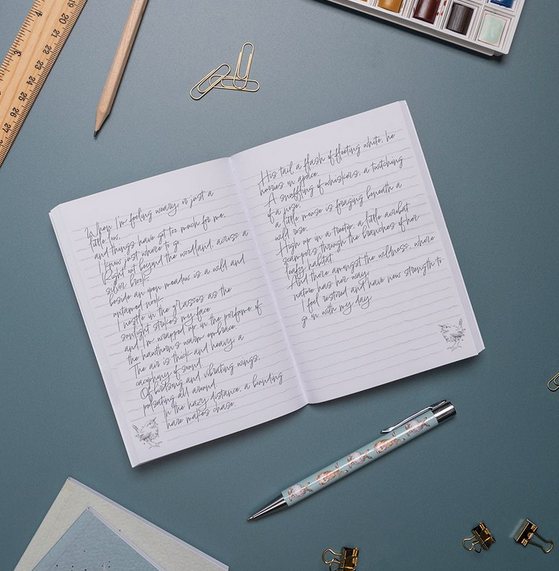 When I'm feeling weary, or just a
little low,
and things have got too much for me,
I know just where to go.
Right out beyond the woodland, across a
silver brook,
beside an open meadow is a wild and
untamed nook.
I nestle in the grasses as the
sunlight strokes my face
and I'm wrapped up in the perfume of
the hawthorn's warm embrace.
The air is thick and heavy, a
cacophony of sound
Of birdsong and vibrating wings,
pulsating all around.
In the hazy distance, a bounding
hare makes chase.
His tail a flash of fleeting white, he
hones in grace.
A snuffling of whiskers, a twitching
of a nose,
a little mouse is foraging beneath a
wild rose.
High up in a treetop a little acrobat
scampers through the branches of her
leafy habitat.
And there amongst the wildness, where
nature has her way,
I feel restored and have now strength to
go on with my day.
16
17
18
19
20